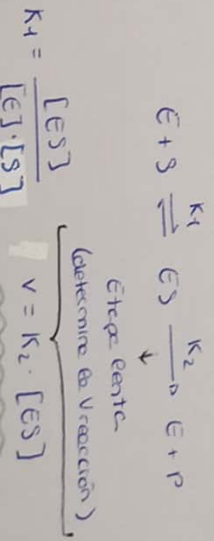 K1 K2
E + S ⇌ ES → E + P
↓
Etapa lenta
(determina la Vreacción)
K1 = [ES] / [E]·[S]
V = K2 · [ES]